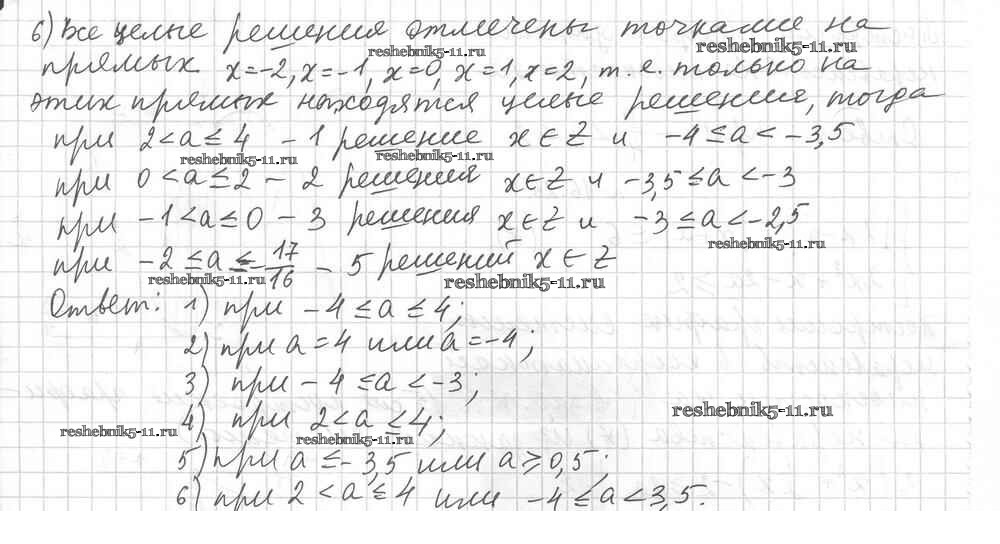 6) Все целые решения отмечены точками на
reshebnik5-11.ru
reshebnik5-11.ru
прямых x=-2, x=-1, x=0, x=1, x=2, т.е. только на
этих прямых находятся целые решения, тогда
при 2<a≤4 - 1 решение x∈Z и -4≤a<-3,5
reshebnik5-11.ru
reshebnik5-11.ru
при 0<a≤2 - 2 решения x∈Z и -3,5≤a<-3
при -1<a≤0 - 3 решения x∈Z и -3≤a<-2,5
reshebnik5-11.ru
при -2≤a≤-17/16 - 5 решений x∈Z
reshebnik5-11.ru
reshebnik5-11.ru
Ответ: 1) при -4≤a≤4;
2) при a=4 или a=-4;
3) при -4≤a<-3;
reshebnik5-11.ru
4) при 2<a≤4;
reshebnik5-11.ru
reshebnik5-11.ru
5) при a≤-3,5 или a≥0,5;
6) при 2<a≤4 или -4≤a<3,5.